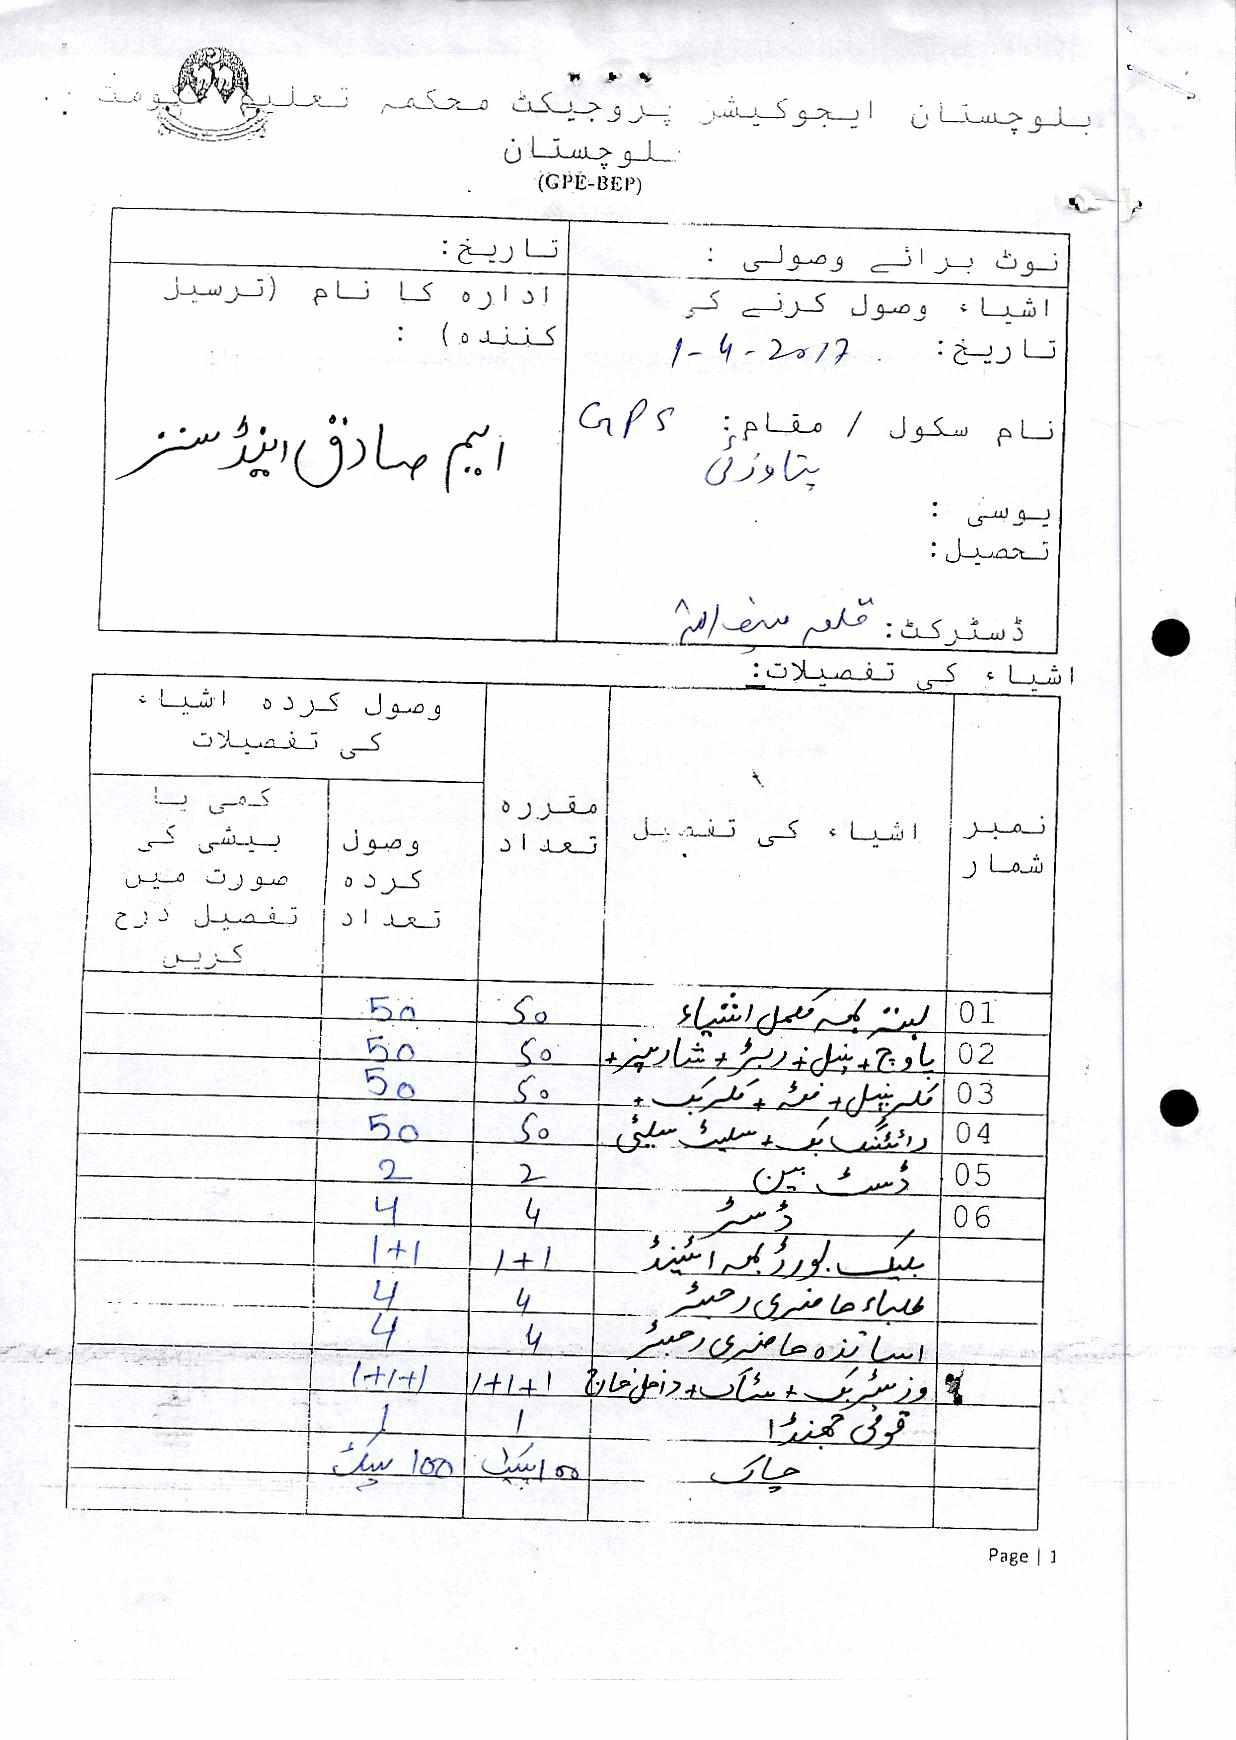 بلوچستان ایجوکیشن پروجیکٹ محکمہ تعلیم حکومت
بلوچستان
(GPE-BEP)
نوٹ برائے وصولی :
تاریخ:
اشیاء وصول کرنے کی
تاریخ: 1-4-2017
نام سکول / مقام: GPS
پتاوزئی
یوسی :
تحصیل:
ڈسٹرکٹ: قلعہ سیف اللہ
ادارہ کا نام (ترسیل
کنندہ) :
ایم صادق اینڈ سنز
اشیاء کی تفصیلات:
نمبر شمار
اشیاء کی تفصیل
مقررہ تعداد
وصول کردہ اشیاء کی تفصیلات
وصول کردہ تعداد
کمی یا بیشی کی صورت میں تفصیل درج کریں
01 بستہ بمعہ مکمل اشیاء 50 50
02 پاوچ + پنسل + ربڑ + شارپنر + 50 50
03 کلر پنسل + فٹہ + کلر بک + 50 50
04 رائٹنگ بک + سلیٹ سلیٹی 50 50
05 ڈسٹ بین 2 2
06 ڈسٹر 4 4
بلیک بورڈ بمعہ اسٹینڈ 1+1 1+1
طلباء حاضری رجسٹر 4 4
اساتذہ حاضری رجسٹر 4 4
وزیٹر بک + سٹاک + داخل خارج 1+1+1 1+1+1
قومی جھنڈا 1 1
چاک 100 پیکٹ 100 پیکٹ
Page | 1